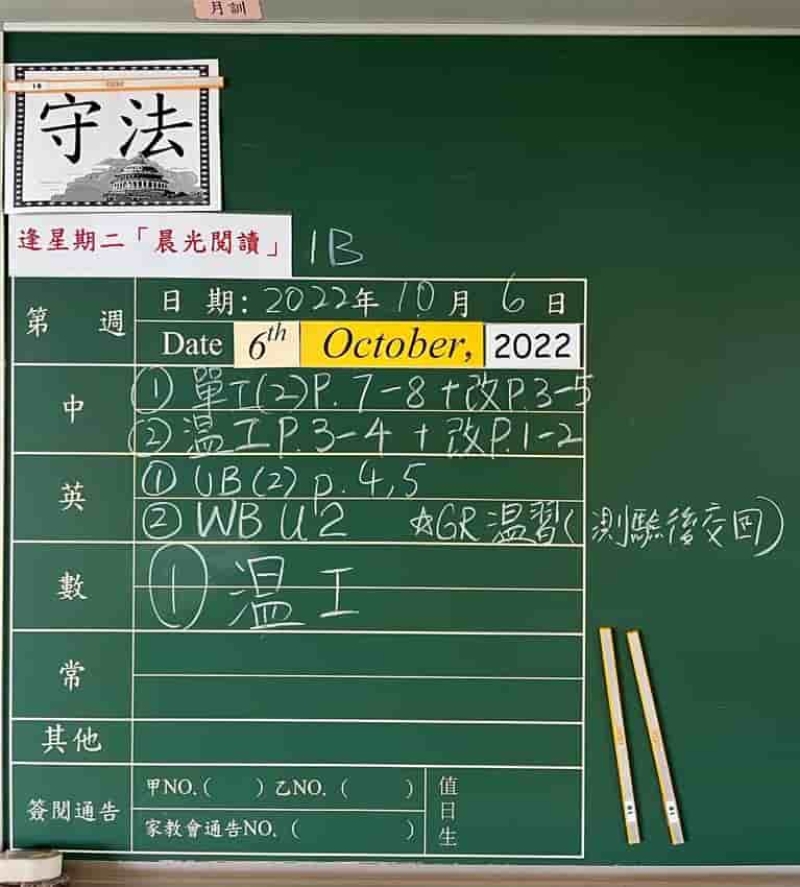 月訓
守法
逢星期二「晨光閱讀」 1B
第 週
日 期: 2022年 10 月 6 日
Date 6th October, 2022
中
① 單工(2)P. 7-8 +改P.3-5
② 温工P.3-4 + 改P.1-2
英
① UB(2) p. 4,5
② WB U2 ☆GR 温習(測驗後交回)
數
① 温工
常
其他
簽閱通告
甲NO.( )乙NO.( )
家教會通告NO.( )
值日生